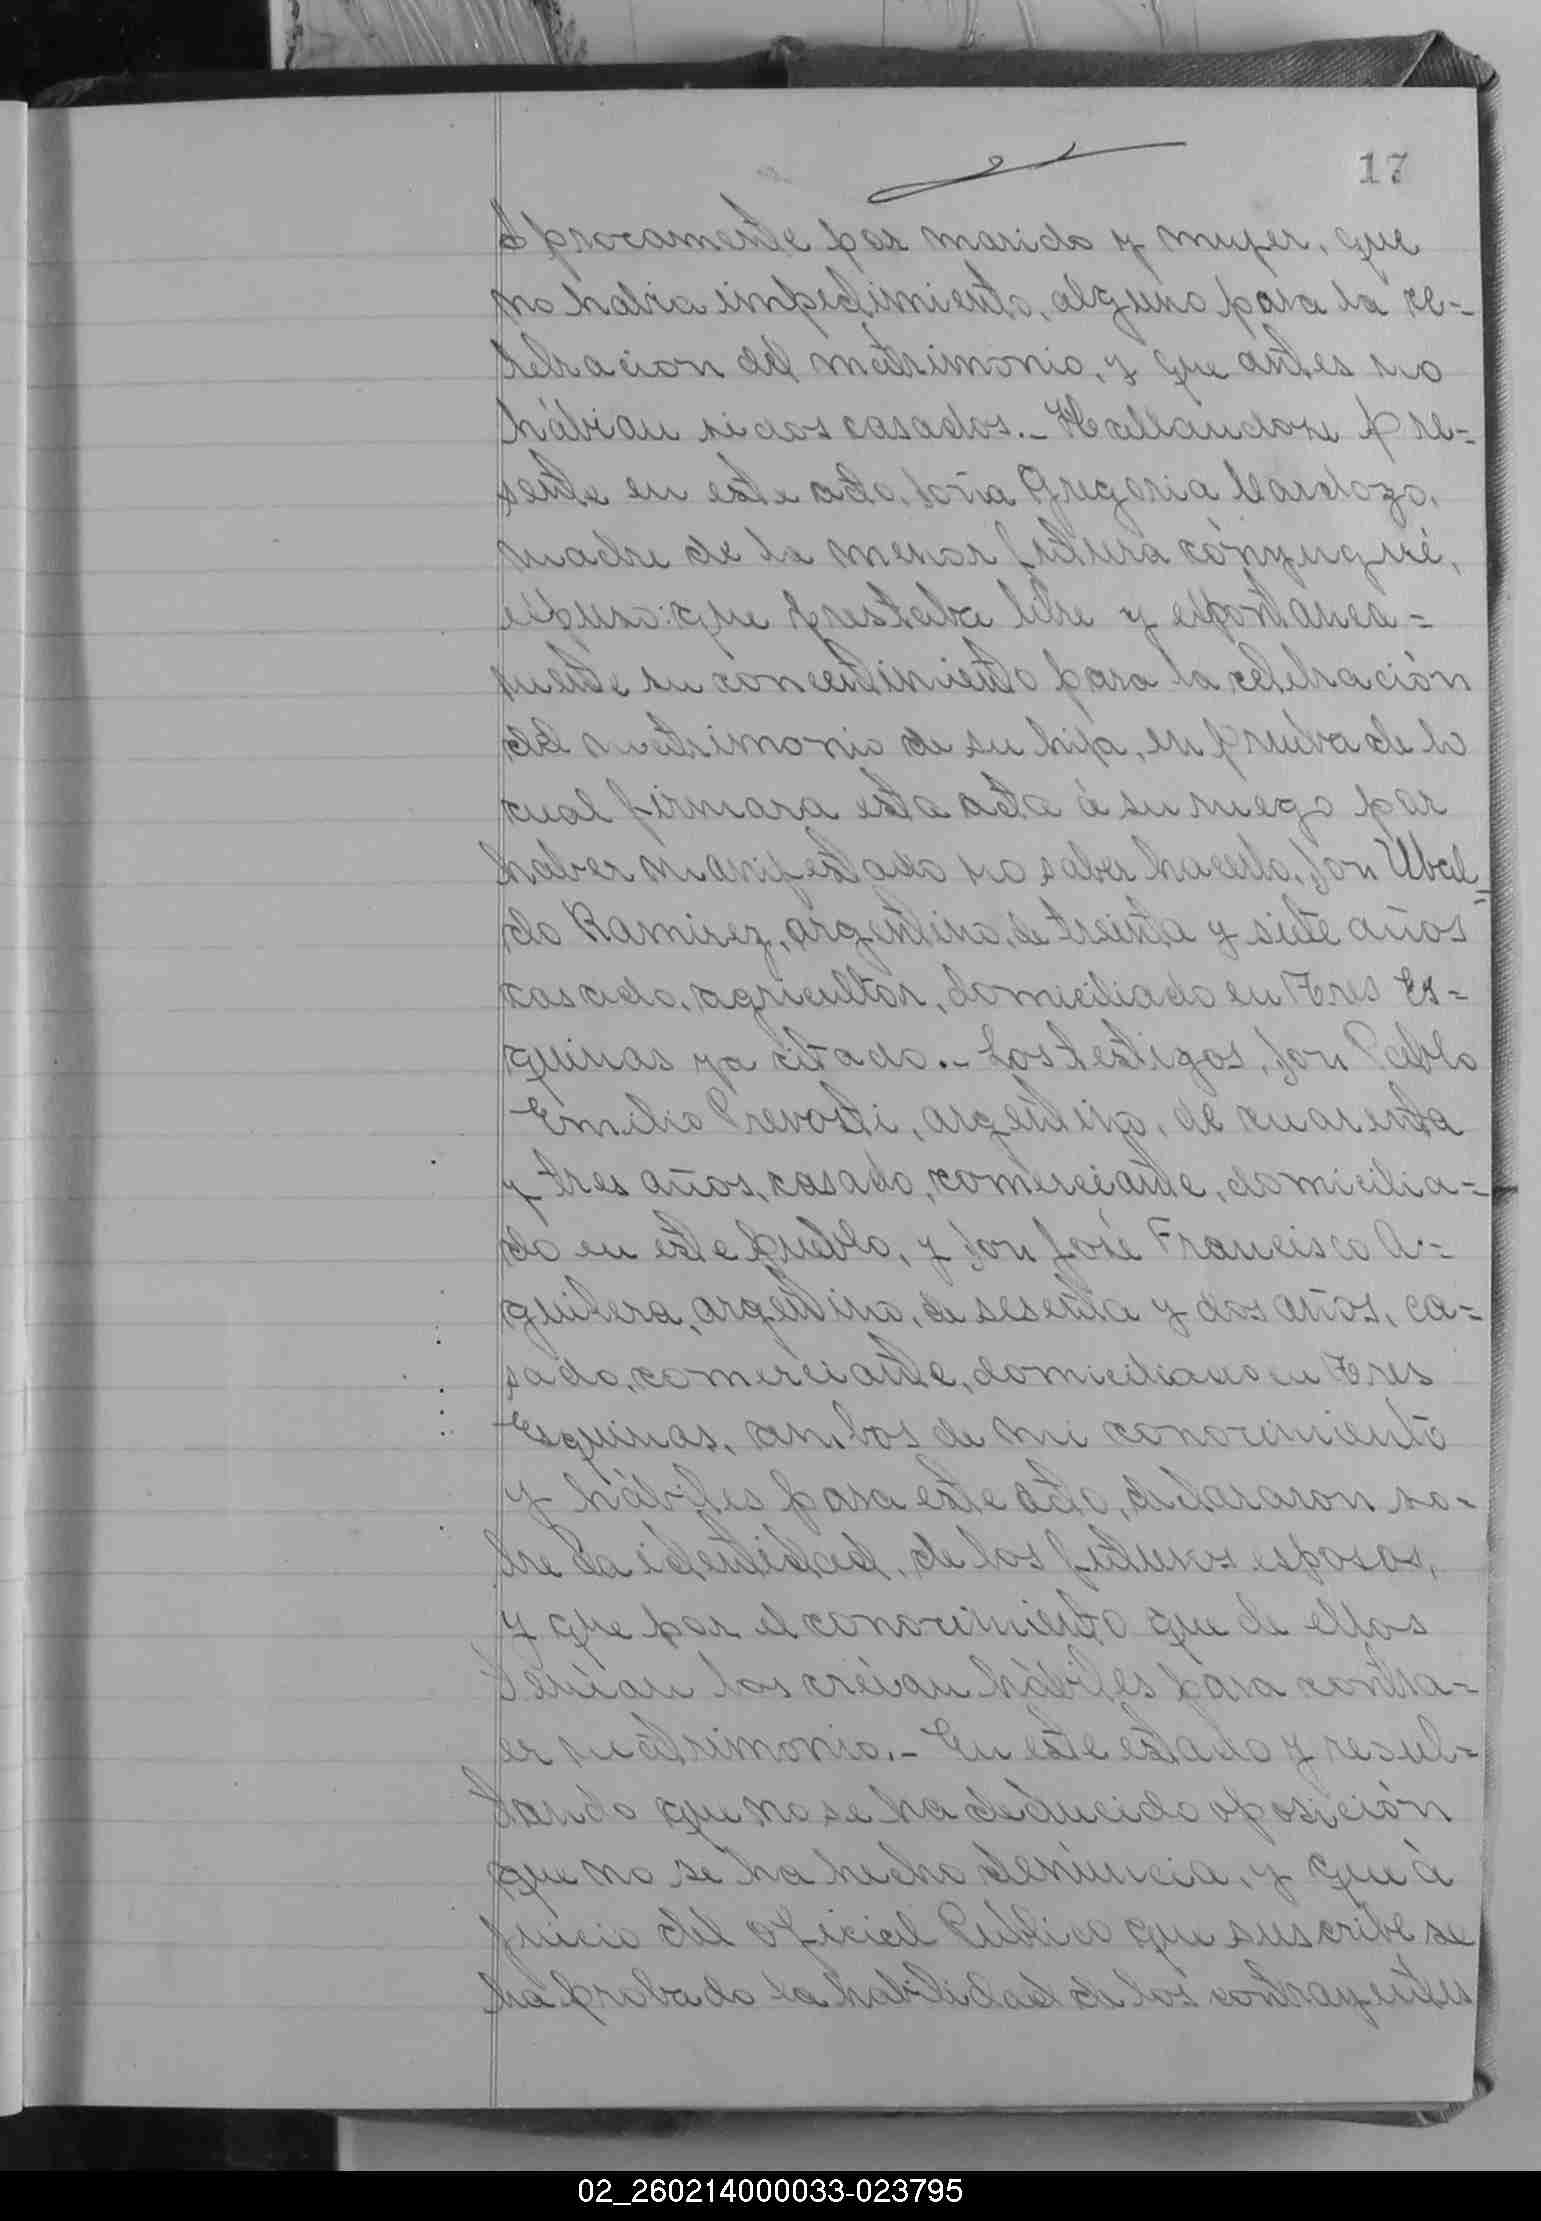 17
procamente por marido y mujer, que
no habia impedimiento, alguno para la ce-
lebracion del matrimonio, y que antes no
hábian sidos casados.- Hallándose pre=
sente en este acto, doña Gregoria Cardozo,
madre de la menor futura cónyugué,
expuso: que prestaba libre y espontanea=
mente su concentimiento para la celebración
del matrimonio de su hija, en prueba de lo
cual firmara esta acta á su ruego por
haber manifestado no saber hacerlo, don Ubal=
do Ramirez, argentino, de treinta y siete años
casado, agricultor, domiciliado en Tres Es=
quinas ya citado.- Los testigos, don Pablo
Emilio Prevosti, argentino, de cuarenta
y tres años, casado, comerciante, domicilia=
do en este pueblo, y don José Francisco A.=
guilera, argentino, de sesenta y dos años, ca=
sado, comerciante, domiciliado en Tres
Esquinas, ambos de mi conocimiento
y hábiles para este acto, declararon so=
bre la identidad, de los futuros esposos,
y que por el conocimiento que de ellos
tenían los creían hábiles para contra=
er matrimonio.- En este estado y resul=
tando que no se ha deducido oposición
que no se ha hecho denúncia, y que á
juicio del oficial Público que suscribe se
ha probado la habilidad de los contrayentes
02_260214000033-023795